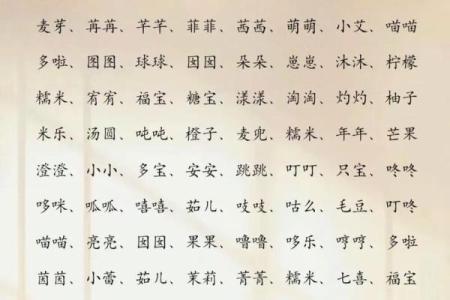 麦芽、苒苒、芊芊、菲菲、茜茜、萌萌、小艾、喵喵
多啦、图图、球球、囡囡、朵朵、崽崽、沐沐、柠檬
糯米、宥宥、福宝、糖宝、漾漾、淘淘、灼灼、柚子
米乐、汤圆、吨吨、橙子、麦兜、糯米、年年、芒果
澄澄、小小、多宝、安安、跳跳、叮叮、只宝、咚咚
哆咪、呱呱、嘻嘻、茹儿、吱吱、咕么、毛豆、叮咚
喵喵、亮亮、囡囡、果果、噜噜、哆乐、哼哼、多啦
茵茵、小蕾、茹儿、茉莉、菁菁、糯米、七喜、福宝